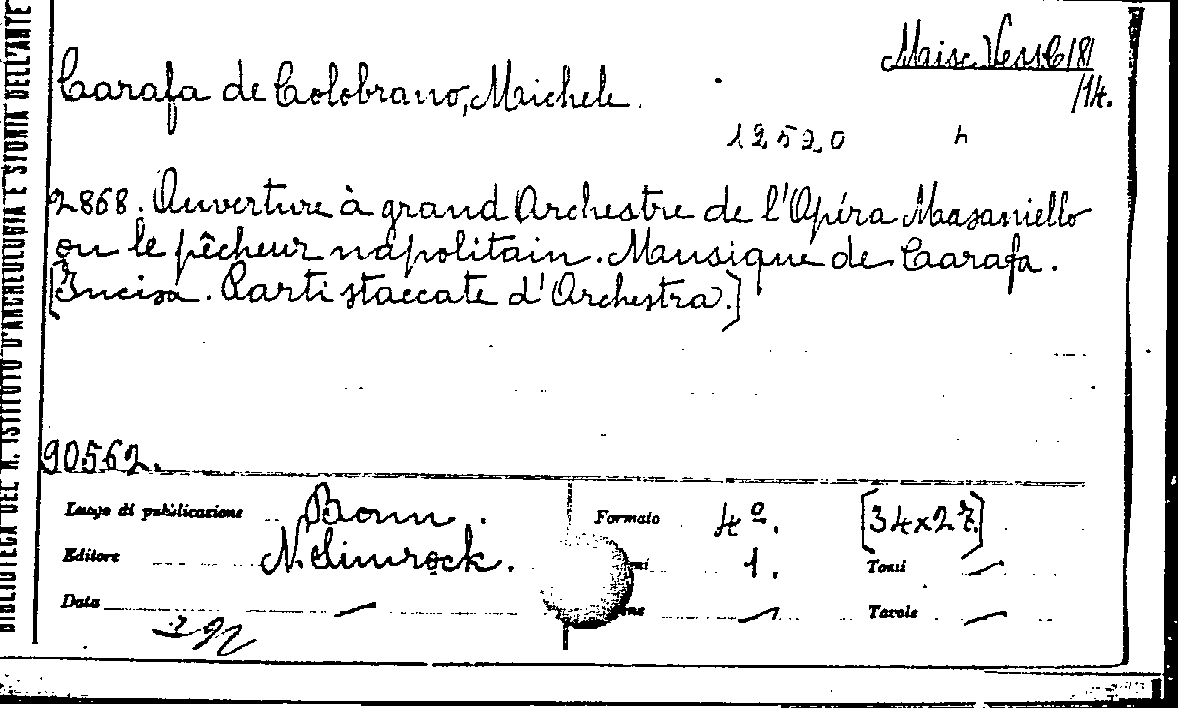 BIBLIOTECA DEL R. ISTITUTO D'ARCHEOLOGIA E STORIA DELL'ARTE
/14.
Carafa de Colobrano, Michele.
12520
2868. Ouverture à grand Orchestre de l'Opéra Masaniello
ou le pêcheur napolitain. Musique de Carafa.
[Incisa. Parti staccate d'Orchestra.]
90562.
Luogo di pubblicazione Bonn. Formato 4º. [34x27]
Editore N. Simrock. 1. Tomi —
Data — — Tavole —